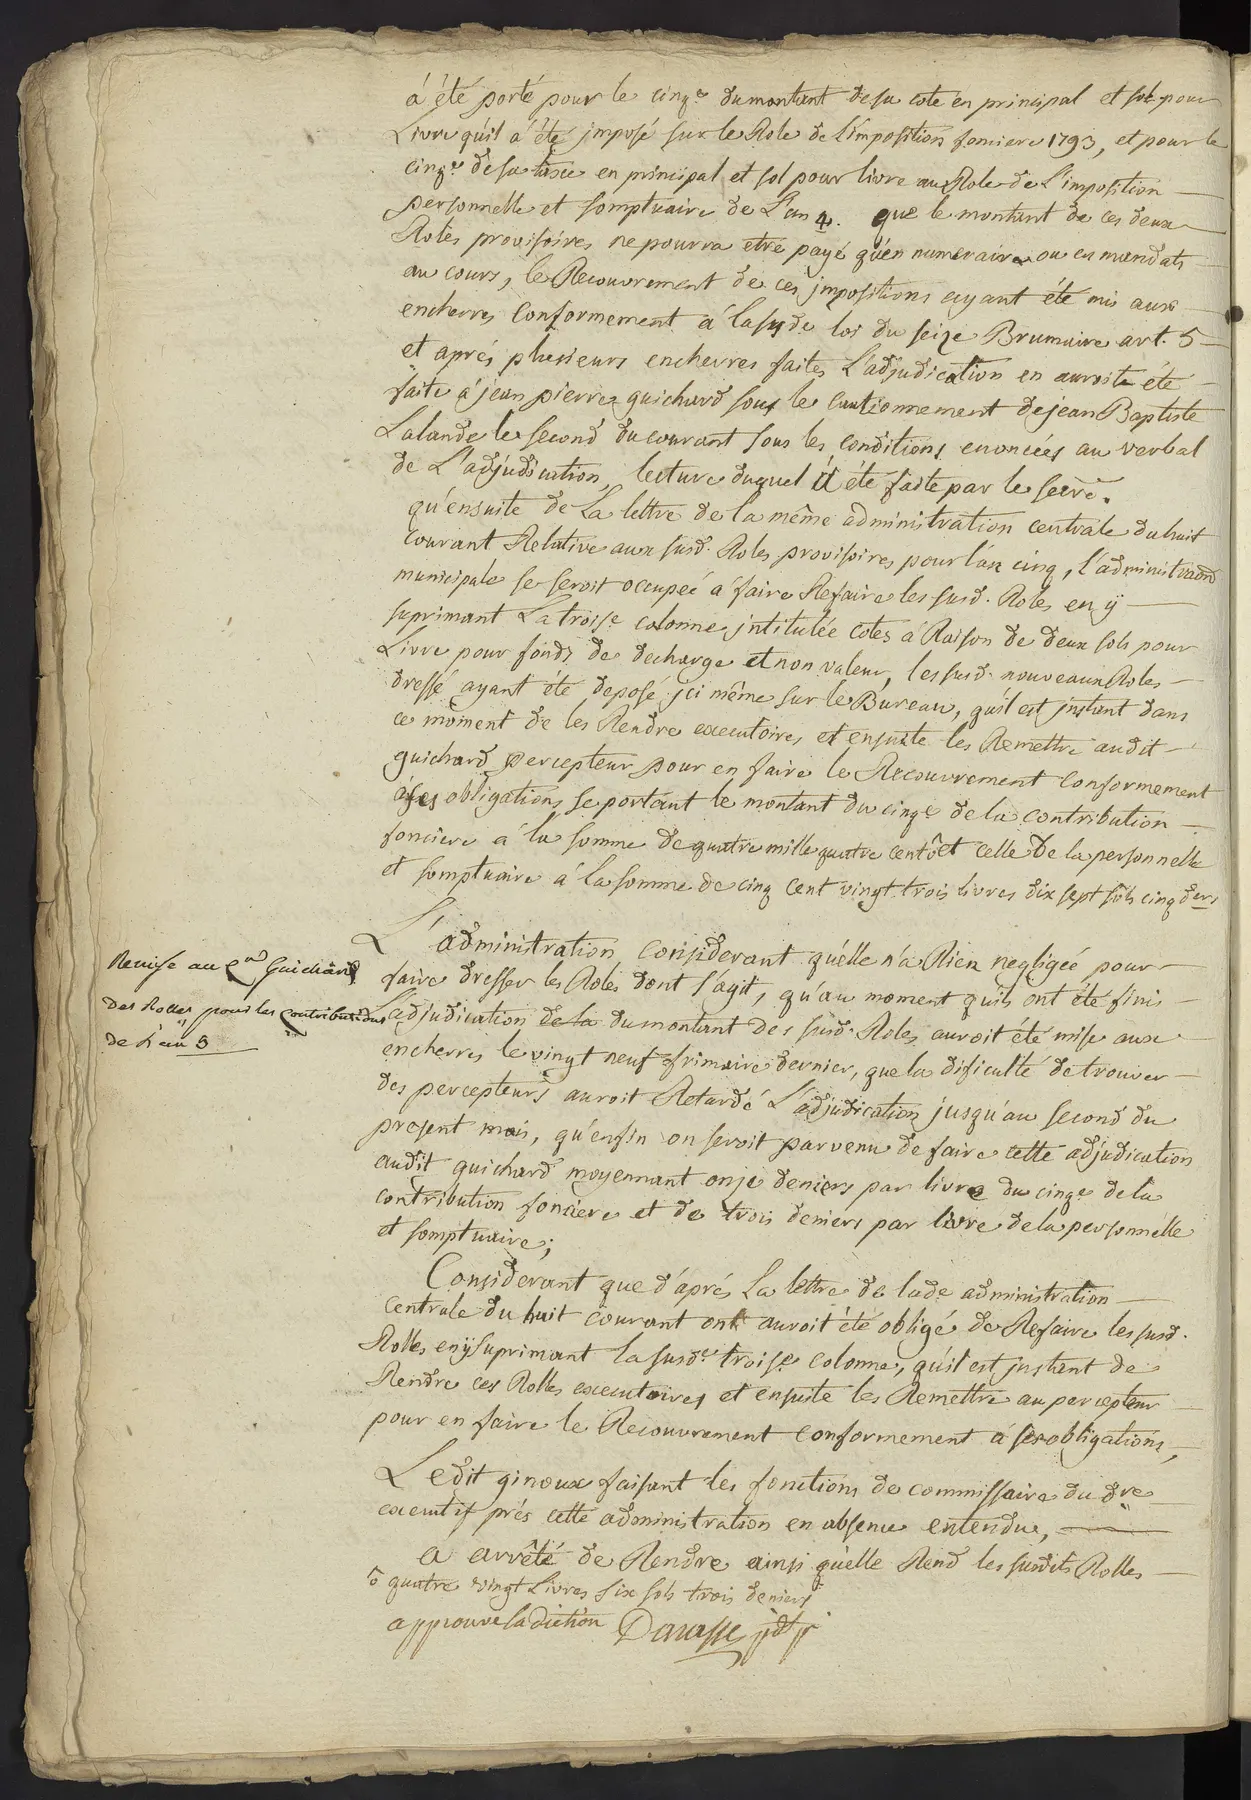 a été porté pour le cinqe. du montant de sa cote en principal et sol pour
Livre qu'il a été jmposé sur le Role de L'imposition fonciere 1793, et pour le
cinqe. de sa taxe en principal et sol pour livre au Role de L'imposition
personnelle et somptuaire de L'an 4. que le montant de ces deux
Roles provisoires ne pourra etre payé qu'en numeraire ou en mandats
au cours, le Recouvrement de ces jmpositions ayant été mis aux
encherres Conformement á la susde. loi du seize Brumaire art. 5
et aprés plusieurs encherres faites L'adjudication en auroit été
faite á jean pierre guichard sous le cautionnement de jean Baptiste
Lalande le second du courant sous les conditions enoncées au verbal
de L'adjudication, lecture duquel á été faite par le secre.
qu'ensuite de La lettre de la même administration centrale du huit
Courant Relative aux susd. Roles provisoires pour l'an cinq, l'administraon
municipale se seroit occupée á faire Refaire les susd. Roles en ÿ
suprimant La troise colonne jntitulée cotes á Raison de deux sols pour
Livre pour fonds de decharge et non valeur, les susd. nouveaux Roles
dressé ayant été deposé jci même sur le Bureau, qu'il est jnstant dans
ce moment de les Rendre executoires et ensuite les Remettre audit
guichard percepteur pour en faire le Recouvrement conformement
á ses obligations se portant le montant du cinqe de la contribution
fonciere á la somme de quatre mille quatre cent ō et celle De la personnelle
et somptuaire á la somme de cinq cent vingt trois livres dix sept sols cinq ders
L'administration, considerant qu'elle n'a Rien negligée pour
faire dresser les Roles dont s'agit, qu'au moment qu'ils ont été finis
L'adjudication de la du montant des susd. Roles auroit été mise aux
encherres le vingt neuf frimaire dernier, que la dificulté de trouver
des percepteurs auroit Retardé L'adjudication jusqu'au second du
present mois, qu'enfin on seroit parvenu de faire cette adjudication
audit guichard moyennant onze deniers par livre du cinqe de la
contribution fonciere et de trois deniers par livre de la personnelle
et somptuaire;
Considerant que d'aprés La lettre de lade administration
Centrale du huit courant ont auroit été obligé de Refaire les susd.
Rolles en ÿ suprimant la susde. troise. colonne, qu'il est jnstant de
Rendre ces Rolles executoires et ensuite les Remettre au percepteur
pour en faire le Recouvrement conformement á ses obligations,
Ledit ginoux faisant les fonctions de commissaire du dre
executif prés cette administration en absence entendue,
a arrêté de Rendre ainsi qu'elle Rend les susdits Rolles
ō quatre vingt Livres six sols trois deniers
approuve la diction Darasse pdt
Remise au Cen Guichard
des Rolles pour les contributions
de L'an 5